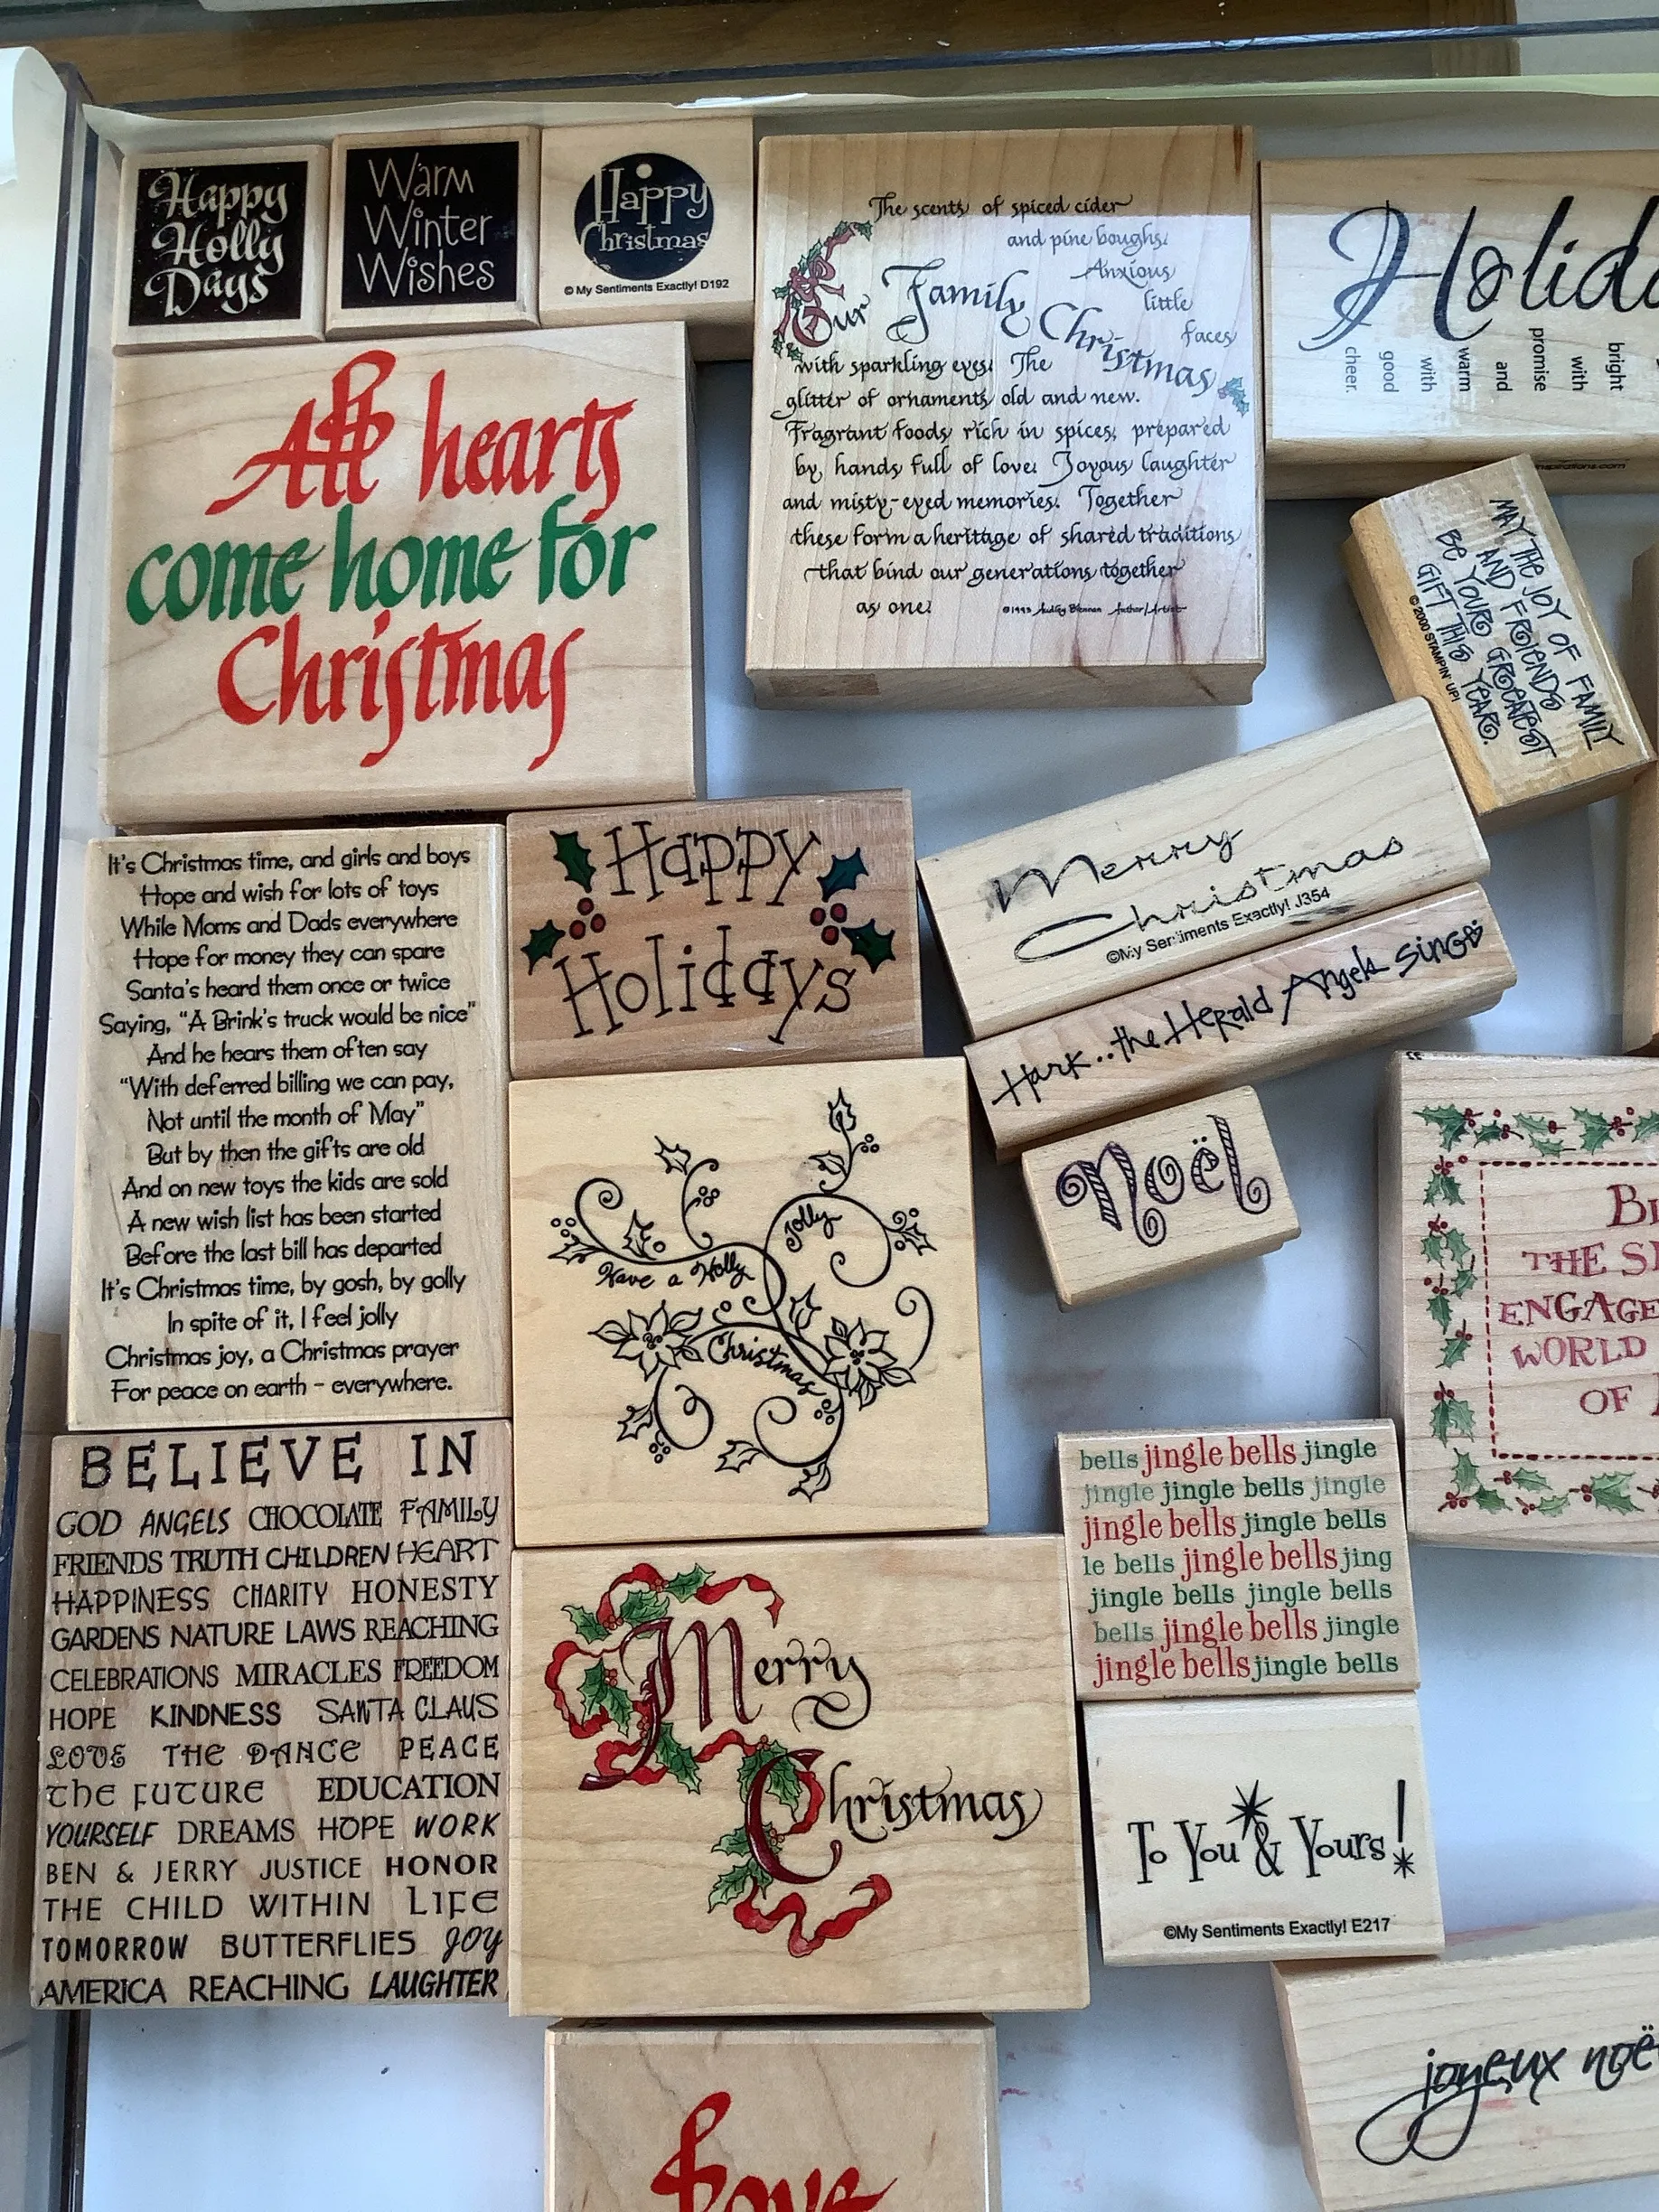 Happy
Holly
Days
Warm
Winter
Wishes
Happy
Christmas
© My Sentiments Exactly! D192
The scents of spiced cider
and pine boughs.
Anxious
little
faces
Our Family Christmas
with sparkling eyes. The
glitter of ornaments old and new.
Fragrant foods rich in spices, prepared
by hands full of love. Joyous laughter
and misty-eyed memories. Together
these form a heritage of shared traditions
that bind our generations together
as one.
Author/Artist
Holid
bright
with
promise
and
warm
with
good
cheer.
All hearts
come home for
Christmas
MAY THE JOY OF FAMILY
AND FRIENDS
BE YOUR GREATEST
GIFT THIS YEAR.
© 2000 STAMPIN' UP!
It's Christmas time, and girls and boys
Hope and wish for lots of toys
While Moms and Dads everywhere
Hope for money they can spare
Santa's heard them once or twice
Saying, "A Brink's truck would be nice"
And he hears them often say
"With deferred billing we can pay,
Not until the month of May"
But by then the gifts are old
And on new toys the kids are sold
A new wish list has been started
Before the last bill has departed
It's Christmas time, by gosh, by golly
In spite of it, I feel jolly
Christmas joy, a Christmas prayer
For peace on earth – everywhere.
Happy
Holidays
Merry
Christmas
©My Sentiments Exactly! J354
Hark...the Herald Angels Sing
Noël
Have a Holly
Jolly
Christmas
THE S
ENGAGE
WORLD
OF
BELIEVE IN
GOD ANGELS CHOCOLATE FAMILY
FRIENDS TRUTH CHILDREN HEART
HAPPINESS CHARITY HONESTY
GARDENS NATURE LAWS REACHING
CELEBRATIONS MIRACLES FREEDOM
HOPE KINDNESS SANTA CLAUS
LOVE THE DANCE PEACE
THE FUTURE EDUCATION
YOURSELF DREAMS HOPE WORK
BEN & JERRY JUSTICE HONOR
THE CHILD WITHIN LIFE
TOMORROW BUTTERFLIES JOY
AMERICA REACHING LAUGHTER
Merry
Christmas
bells jingle bells jingle
jingle jingle bells jingle
jingle bells jingle bells
le bells jingle bells jing
jingle bells jingle bells
bells jingle bells jingle
jingle bells jingle bells
To You & Yours!
©My Sentiments Exactly! E217
joyeux noë